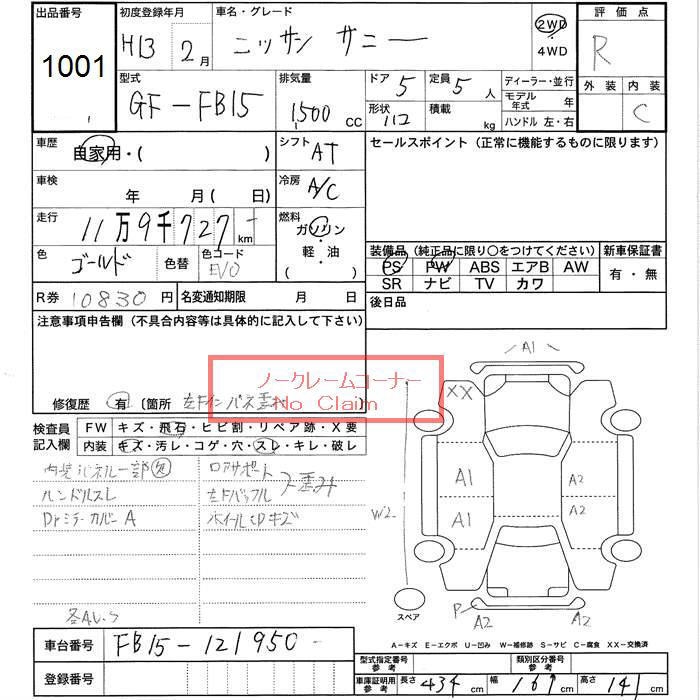 出品番号
1001
初度登録年月
H13 2月
車名・グレード
ニッサン サニー
2WD
4WD
評価点
R
外装 内装
C
型式
GF-FB15
排気量
1500 CC
ドア 5
定員 5 人
形状
積載 kg
ディーラー・並行
モデル年式 年
ハンドル 左・右
車歴
自家用・( )
シフト AT
セールスポイント(正常に機能するものに限ります)
車検
年 月( 日)
冷房 A/C
走行
11万9千727 km
燃料
ガソリン
軽・油
( )
色
ゴールド
色替
色コード
EV0
装備品(純正品に限り○をつけてください)
新車保証書
PS PW ABS エアB AW
SR ナビ TV カワ
有・無
R券 10830円
名変通知期限 月 日
後日品
注意事項申告欄(不具合内容等は具体的に記入して下さい)
ノークレームコーナー
No Claim
修復歴 有 〔箇所
検査員記入欄
FW キズ・飛石・ヒビ割・リペア跡・X要
内装 キズ・汚レ・コゲ・穴・スレ・キレ・破レ
内装パネル一部欠
ロアサポート
ハンドルスレ
左Fバッフル
歪み
Drミラーカバー A
ホイールCDキズ
A1
XX
A1
A2
A1
A2
W2
スペア
P
A2
A2
A-キズ E-エクボ U-凹み W-補修跡 S-サビ C-腐食 XX-交換済
車台番号
FB15-121950
登録番号
型式指定番号参考
類別区分番号参考
車庫証明用参考
長さ 434 cm
幅 169 cm
高さ 141 cm